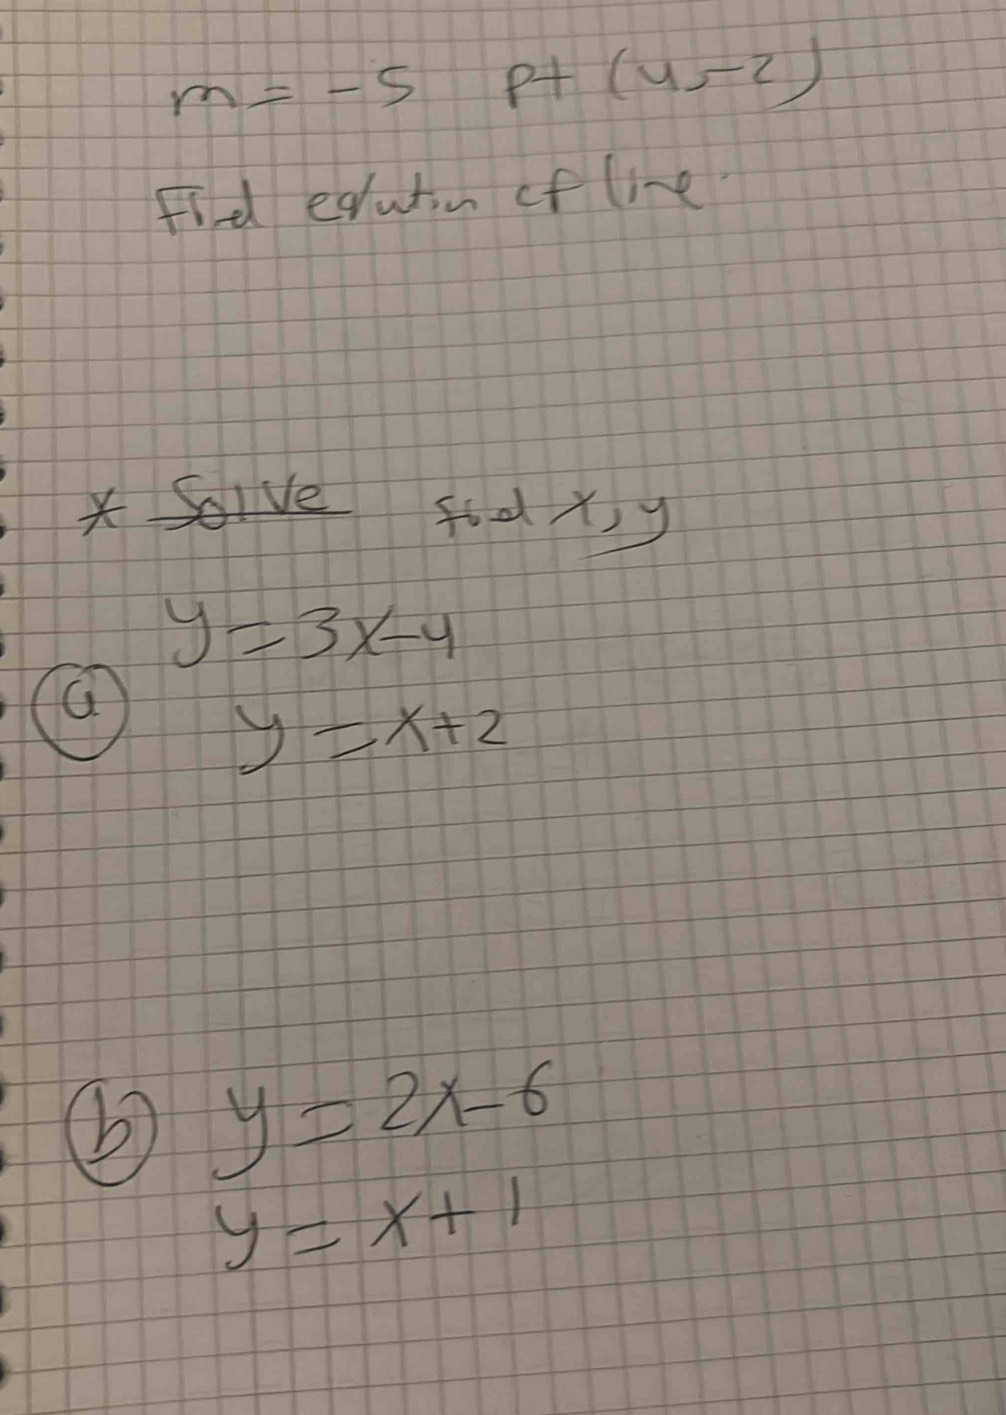 m = -5 pt (4, -2)
Find equation of line.
* Solve find x, y
y = 3x-4
a
y = x+2
b y = 2x-6
y = x+1